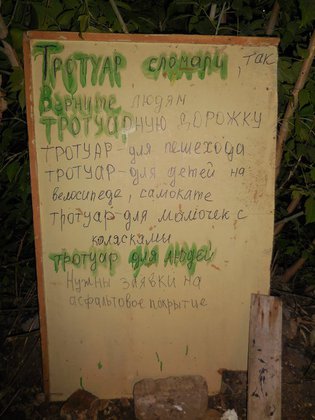 Тротуар сломали, так
Верните людям
тротуарную дорожку
тротуар-для пешехода
тротуар-для детей на
велосипеде, самокате
тротуар для мамочек с
колясками
тротуар для людей
Нужны заявки на
асфальтовое покрытие